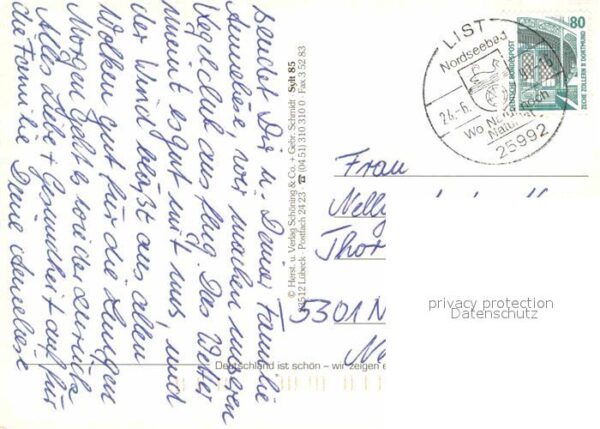 sendet Dir u. Deiner Familie
Anneliese, wir machen unseren
Vogel ausflug. Das Wetter
meint es gut mit uns, und
der Wind bläst aus allen
Wolken gut für die Lungen
Morgen geht es wieder zurück
Alles Liebe + Gesundheit auf für
die Familie Deine Anneliese
© Herst. u. Verlag Schöning & Co. + Gebr. Schmidt Sylt 85
23512 Lübeck · Postfach 24 23 ☎ (04 51) 310 310 0 Fax 3 52 83
Deutschland ist schön – wir zeigen e
LIST
Nordseebad
26.-6.
Wo Natur noch
Natur
25992
80
DEUTSCHE BUNDESPOST
ZECHE ZOLLERN II DORTMUND
Frau
Nelly
Thor
5301 N
Ne
privacy protection
Datenschutz